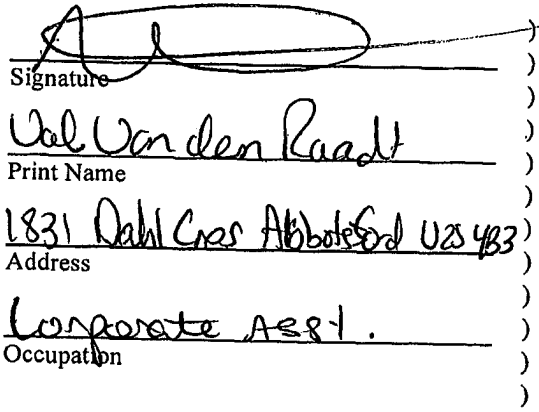 )
Signature )
)
Val Van den Raadt )
Print Name )
)
1831 Dahl Cres Abbotsford V2S 4B3 )
Address )
)
Corporate Asst. )
Occupation )
)